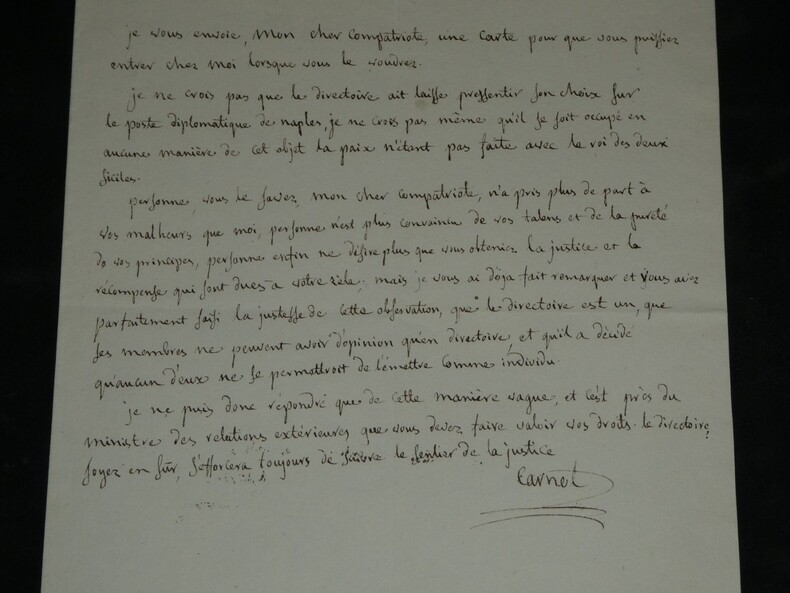 je vous envoie, mon cher compatriote, une carte pour que vous puissiez
entrer chez moi lorsque vous le voudrez.
je ne crois pas que le directoire ait laissé pressentir son choix sur
le poste diplomatique de naples, je ne crois pas même qu'il se soit occupé en
aucune manière de cet objet la paix n'étant pas faite avec le roi des deux
siciles.
personne, vous le savez, mon cher compatriote, n'a pris plus de part à
vos malheurs que moi, personne n'est plus convaincu de vos talens et de la pureté
de vos principes, personne enfin ne désire plus que vous obteniez la justice et la
récompense qui sont dues à votre zèle; mais je vous ai déja fait remarquer et vous avez
parfaitement saisi la justesse de cette observation, que le directoire est un, que
ses membres ne peuvent avoir d'opinion qu'en directoire, et qu'il a décidé
qu'aucun d'eux ne se permettroit de l'émettre comme individu.
je ne puis donc répondre que de cette manière vague, et c'est près du
ministre des relations extérieures que vous devez faire valoir vos droits. le directoire,
soyez en sûr, s'efforcera toujours de suivre le sentier de la justice
Carnot